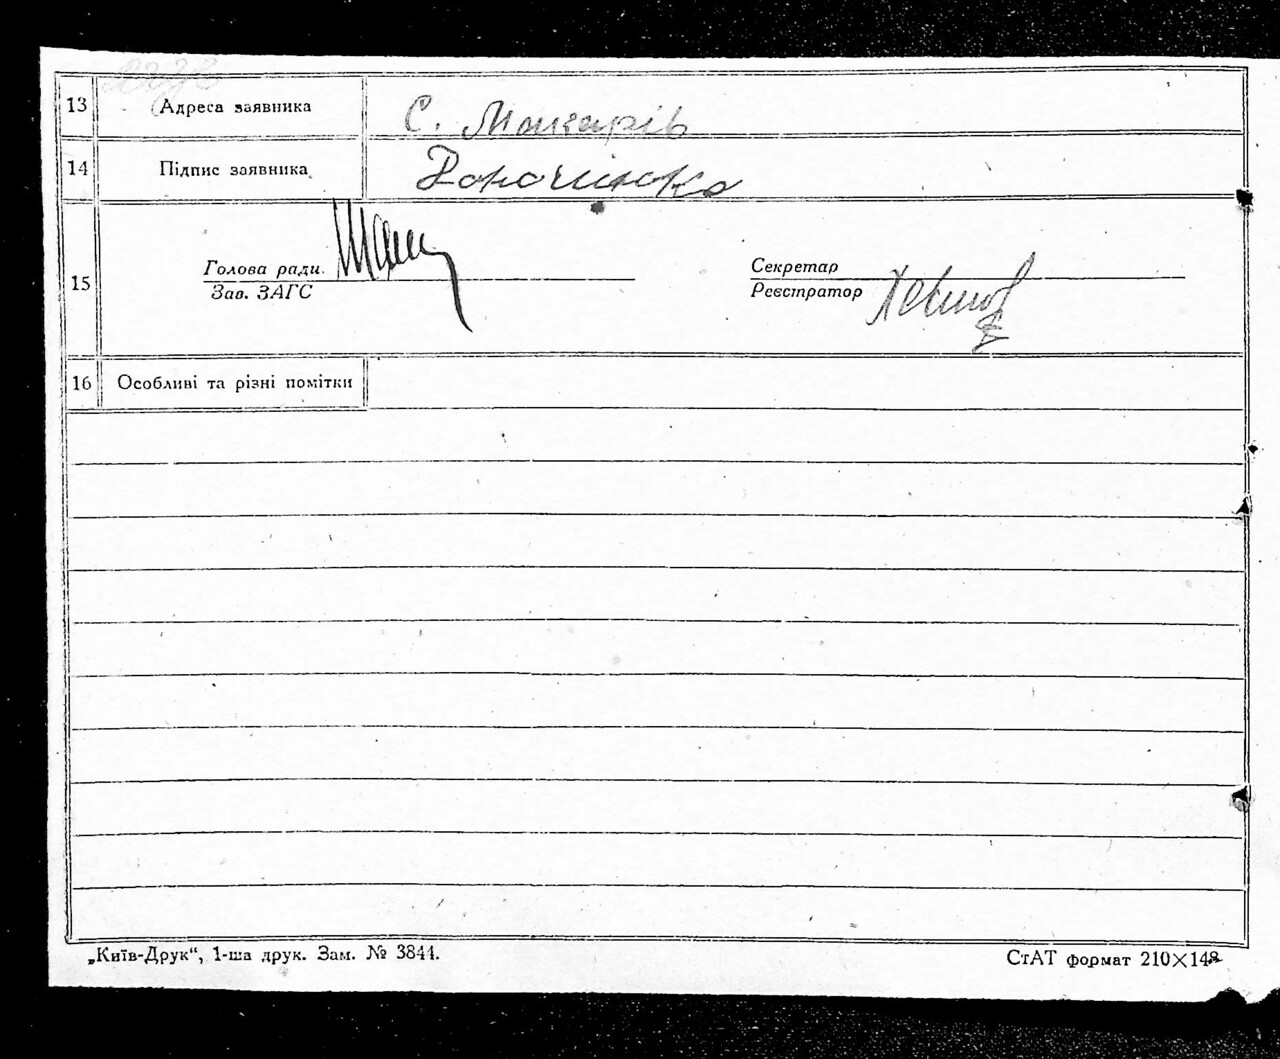 13 Адреса заявника С. Макарів
14 Підпис заявника
15 Голова ради Секретар
Зав. ЗАГС Реєстратор
16 Особливі та різні помітки
„Київ-Друк“, 1-ша друк. Зам. № 3844. СтАТ формат 210×148